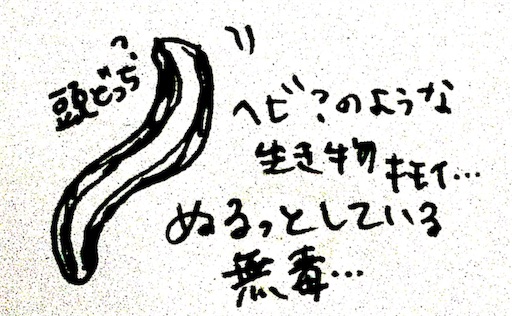 頭どっち?
ヘビ?のような
生き物 キモイ…
ぬるっとしている
無毒…